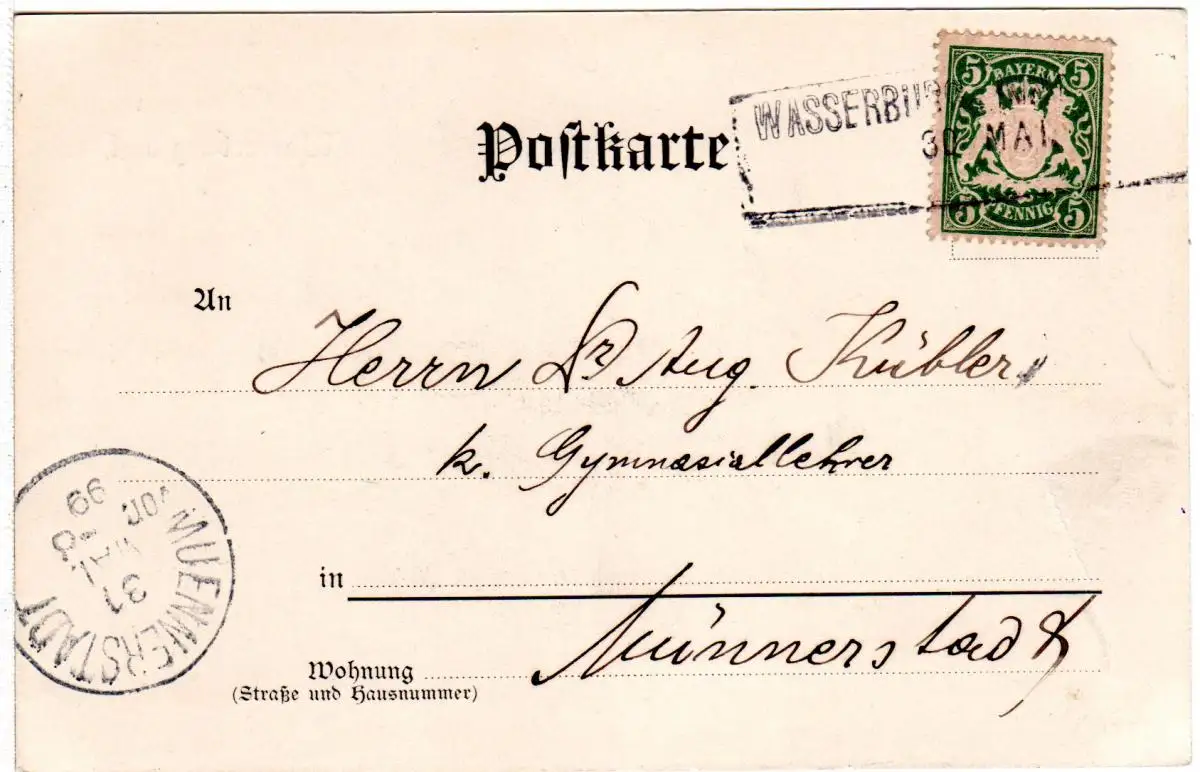 5 BAYERN 5
WASSERBURG
30 MAI
5 PFENNIG 5
Postkarte
An
Herrn Dr Aug. Kübler,
k. Gymnasiallehrer
in
Münnerstadt
Wohnung
(Straße und Hausnummer)
MUENNERSTADT
31
MAI
99